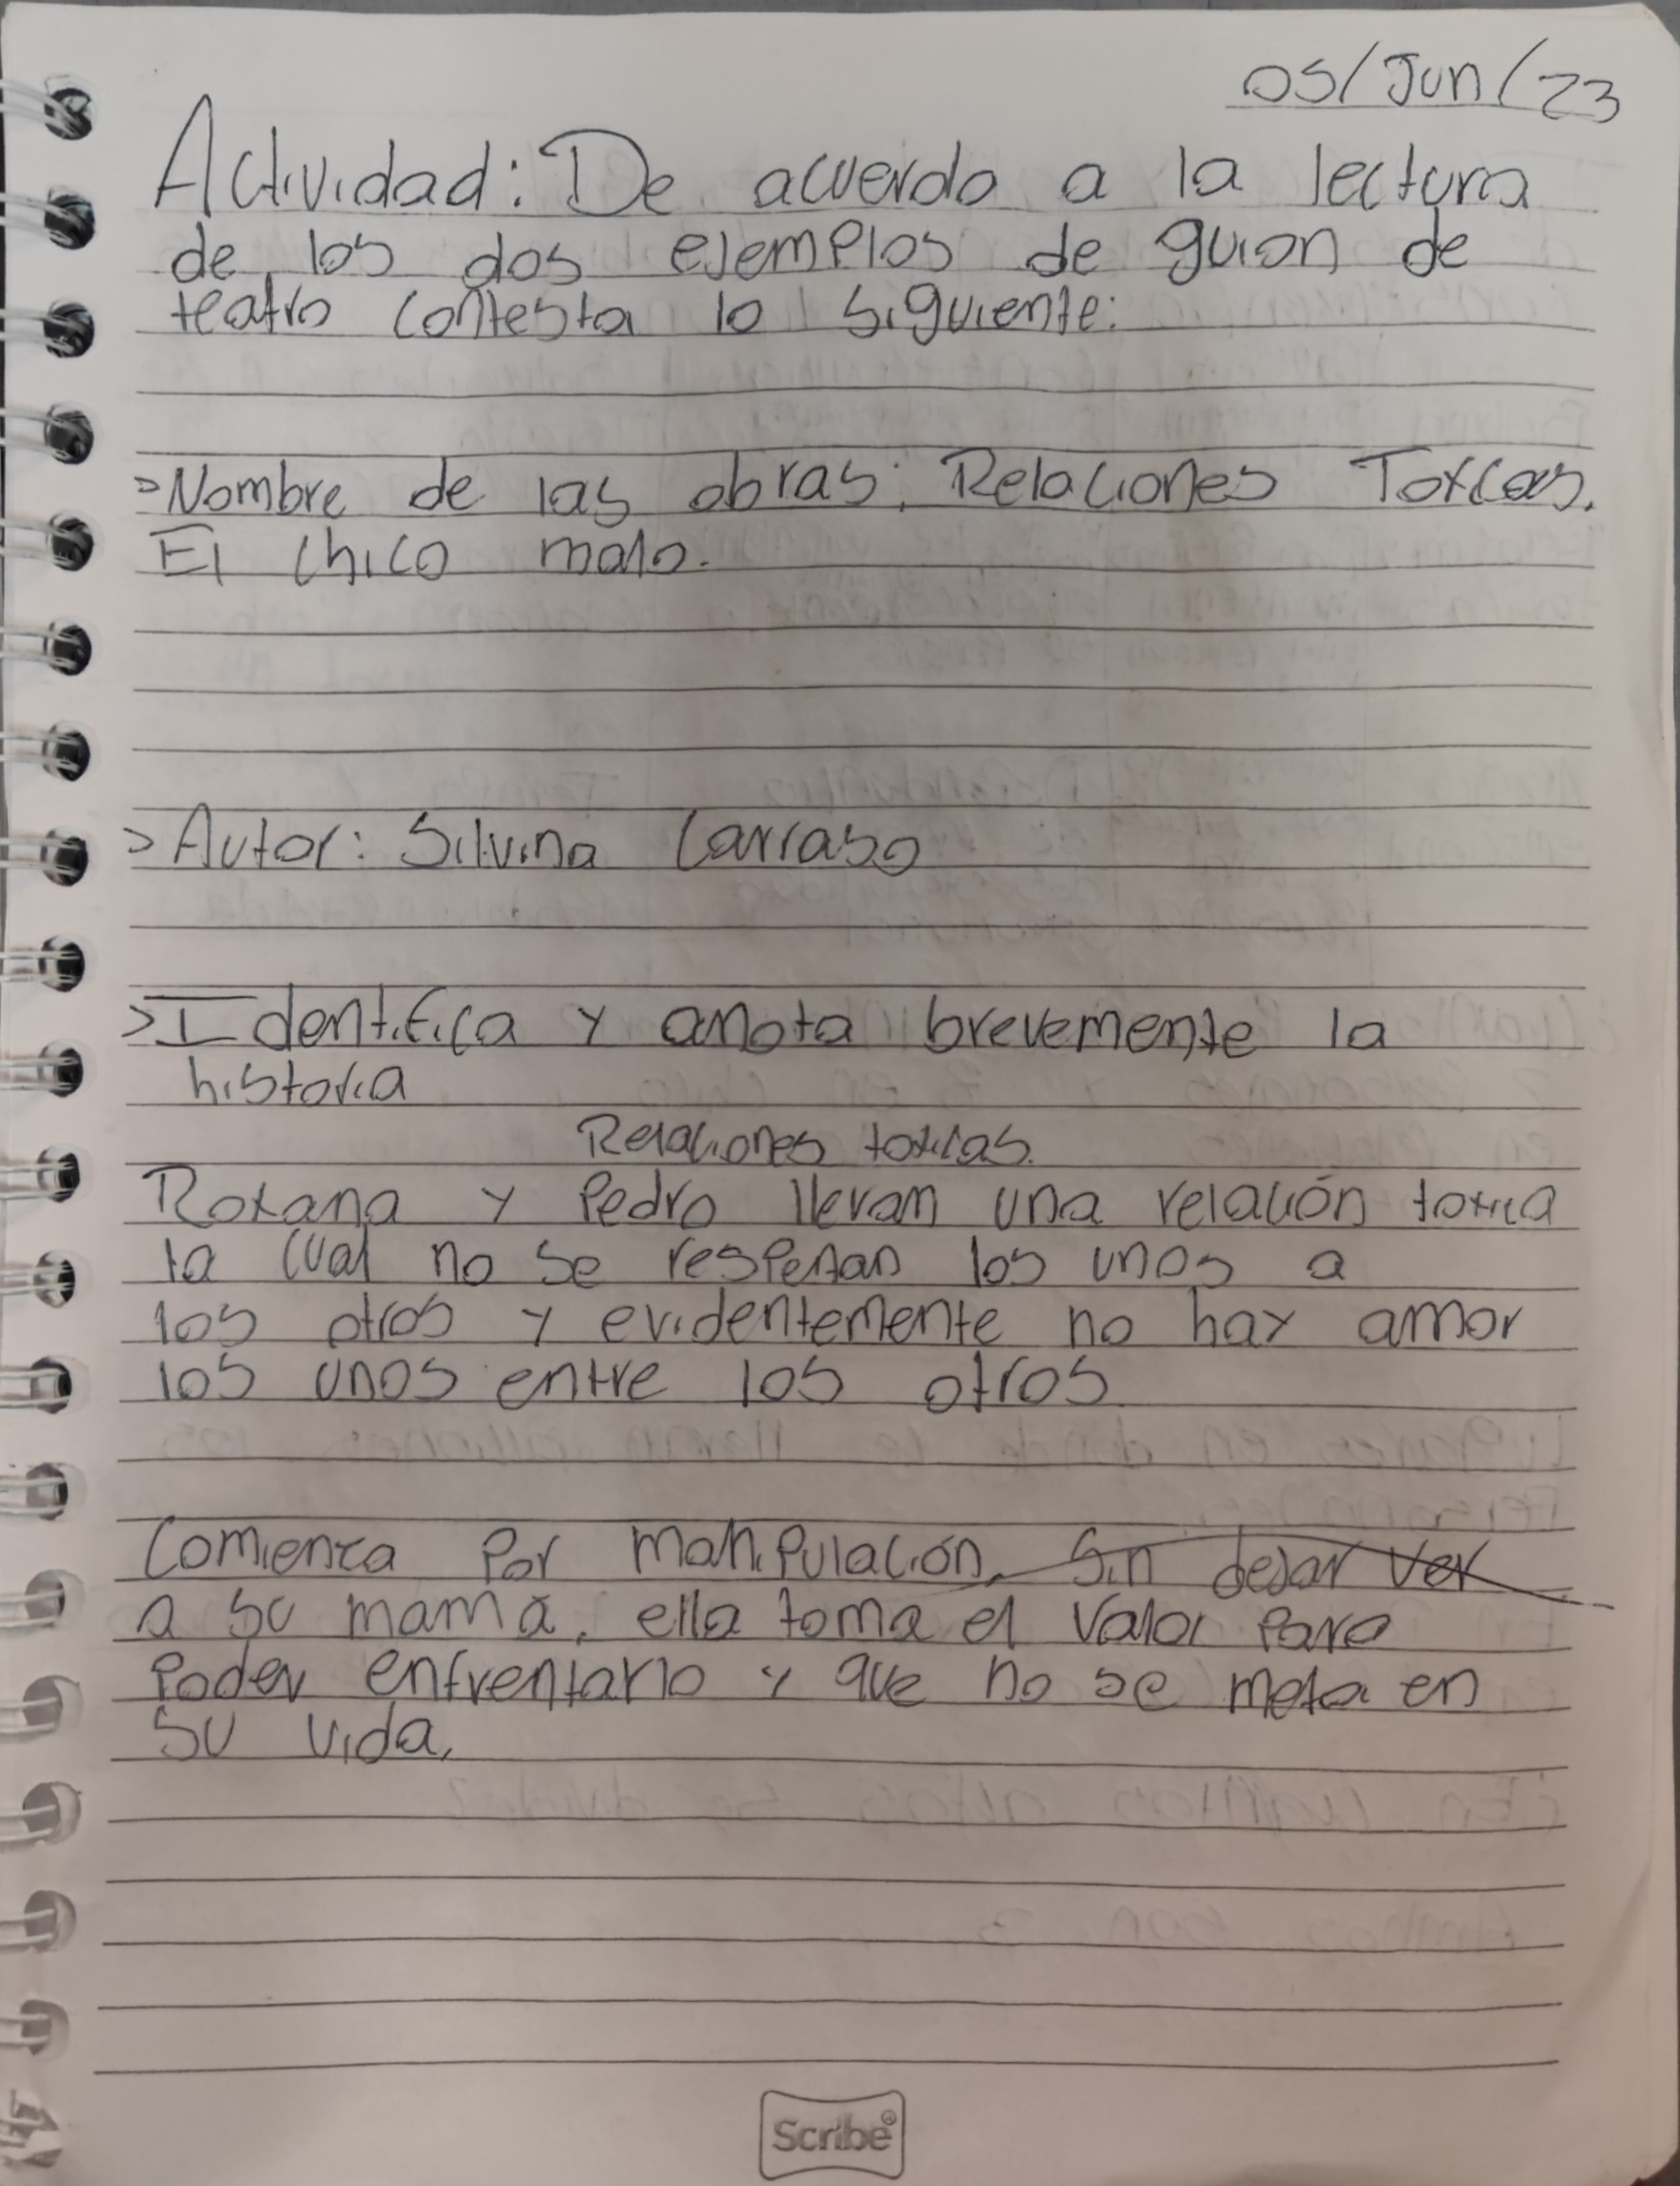 05/Jun/23
Actividad: De acuerdo a la lectura
de los dos ejemplos de guion de
teatro contesta lo siguiente:
>Nombre de las obras: Relaciones Toxicas.
El chico malo.
> Autor: Silvina Carraso
> Identifica y anota brevemente la
historia
Relaciones toxicas.
Roxana y Pedro llevan una relación toxica
la cual no se respetan los unos a
los otros y evidentemente no hay amor
los unos entre los otros.
Comienza por manipulación, sin dejar ver
a su mamá, ella toma el valor para
poder enfrentarlo y que no se meta en
su vida.
Scribe®